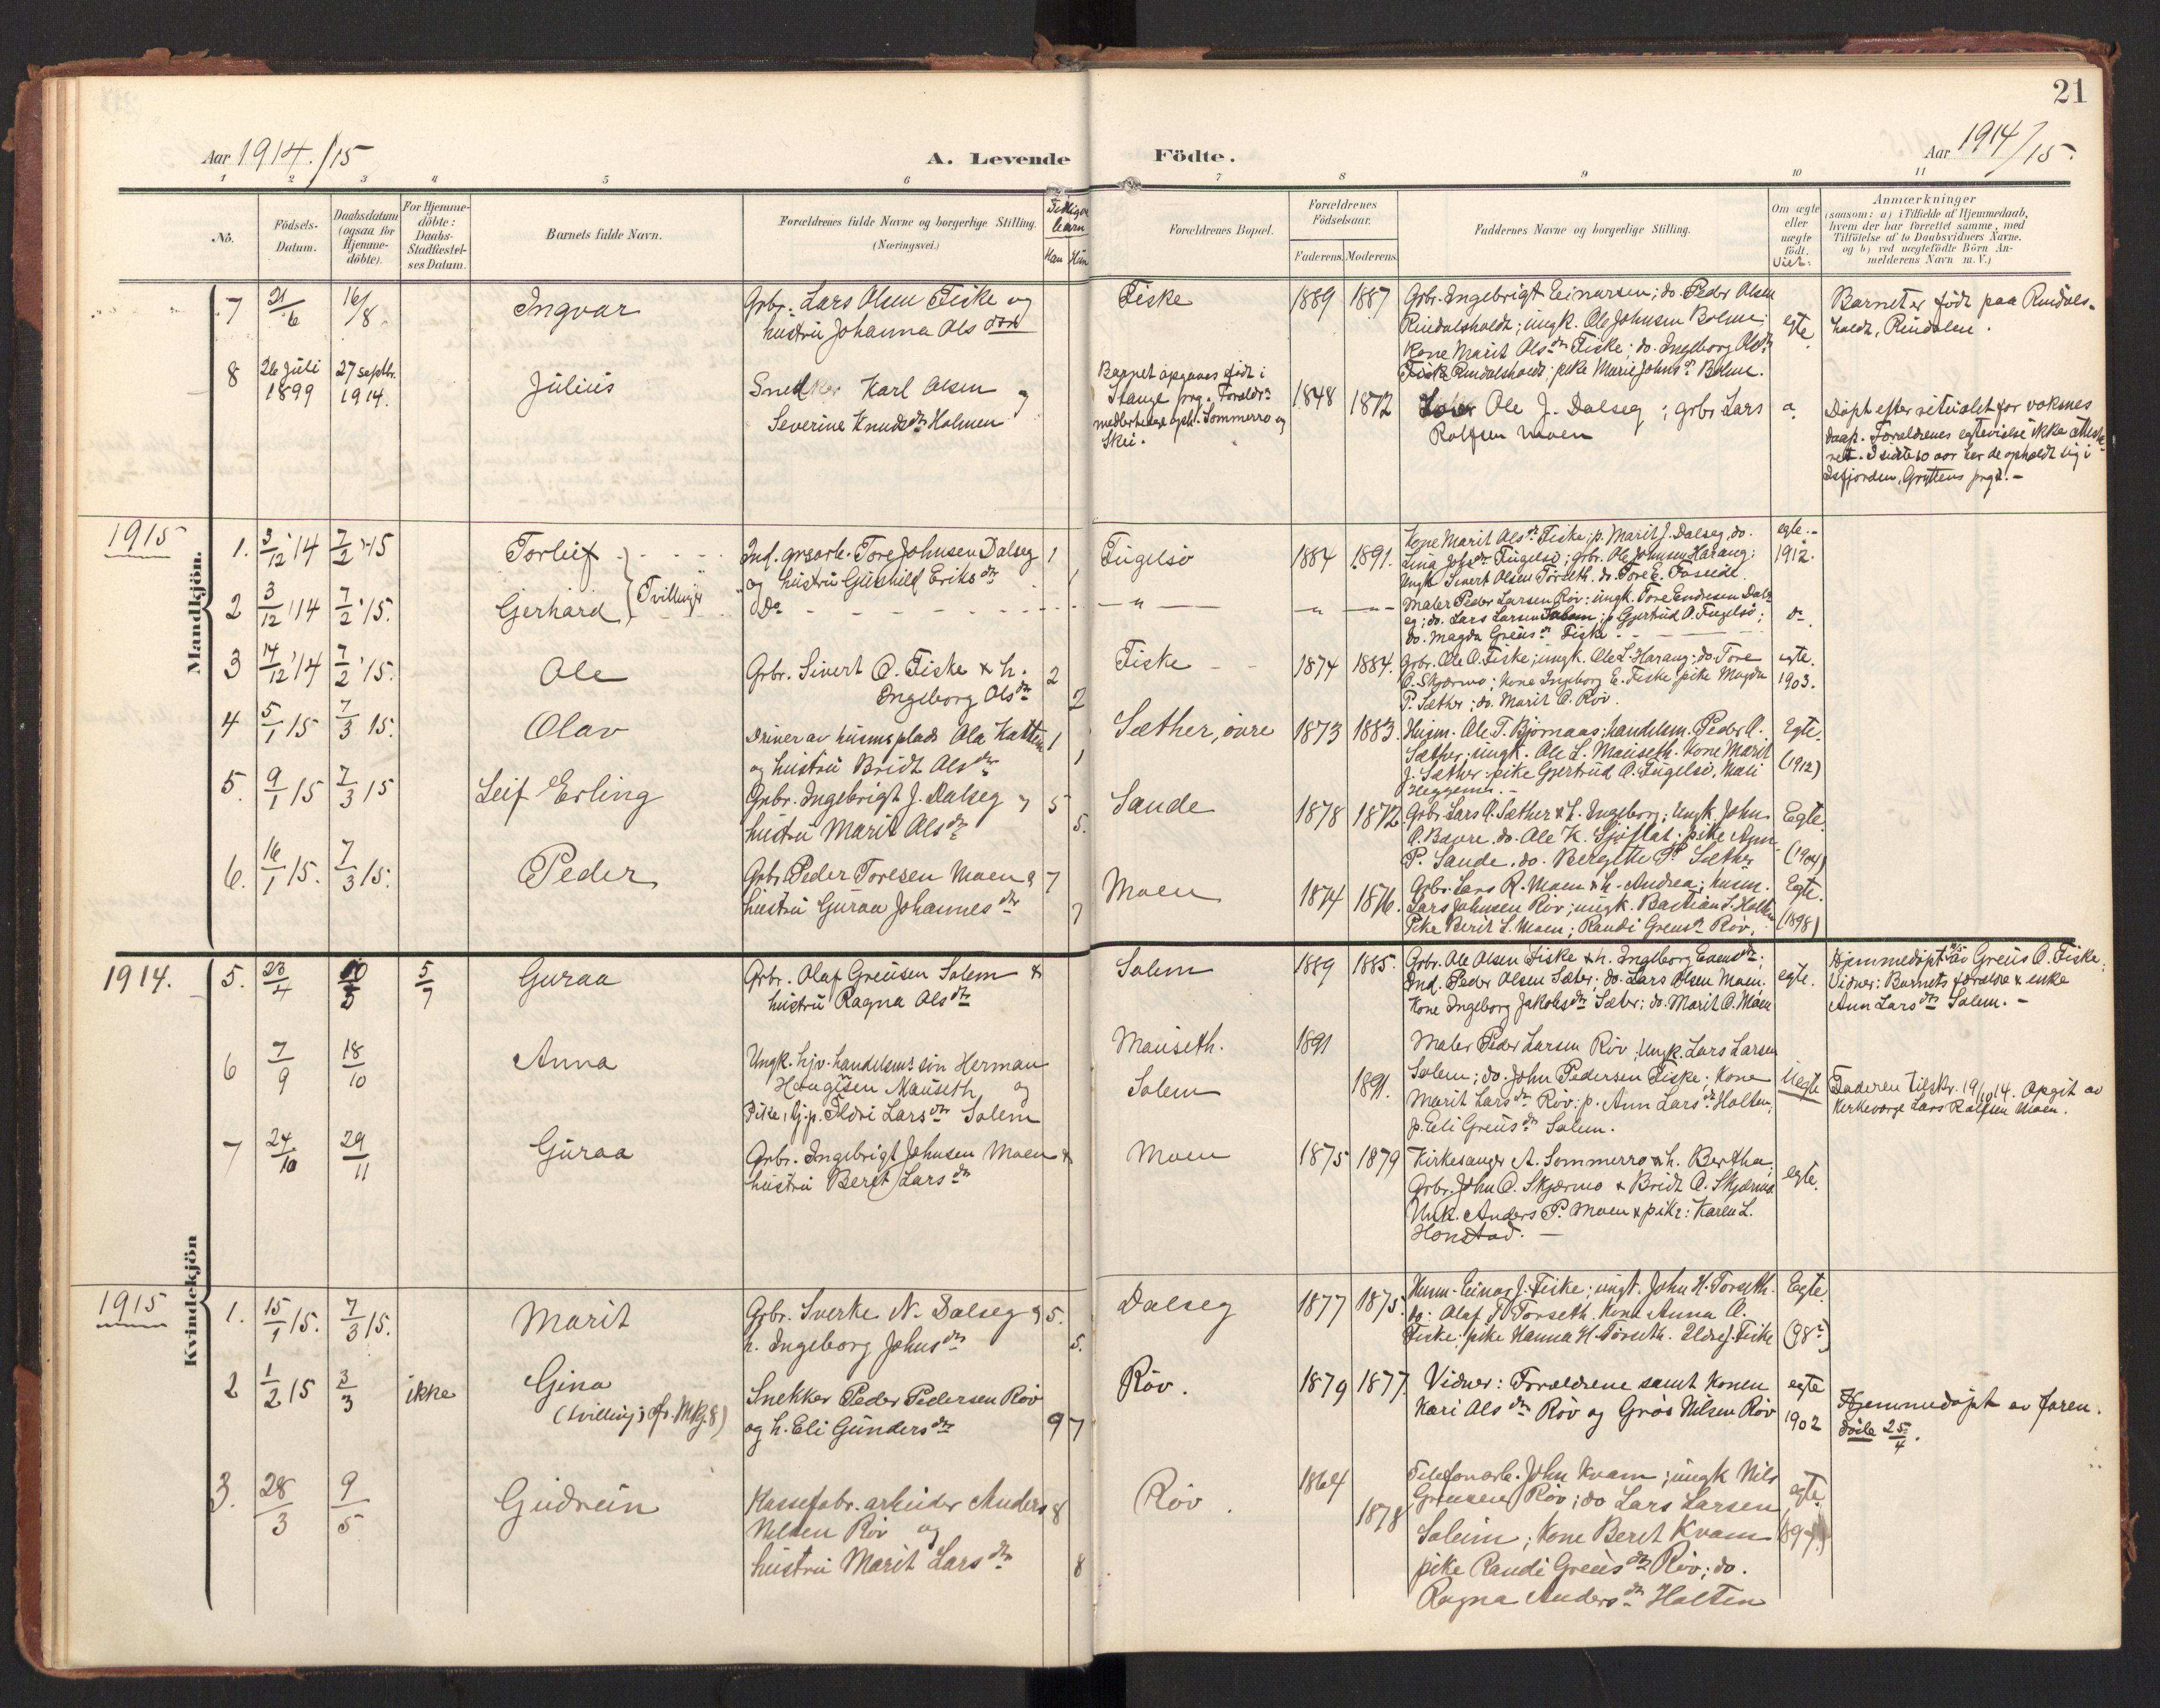 21
Aar 1914./15
A. Levende
Födte.
Aar 1914/15.
1 2 3 4 5 6 7 8 9 10 11
No.
Födsels-
Datum.
Daabsdatum
(ogsaa for
Hjemme-
döbte).
For Hjemme-
döbte:
Daabs-
Stadfæstel-
ses Datum.
Barnets fulde Navn.
Forældrenes fulde Navne og borgerlige Stilling.
(Næringsvei.)
Tidligere
barn
Han Hun
Forældrenes Bopæl.
Forældrenes
Födselsaar.
Faderens. Moderens.
Faddernes Navne og borgerlige Stilling.
Om ægte
eller
uægte
födt.
Viet:
Anmærkninger
(saasom: a) i Tilfælde af Hjemmedaab,
hvem der har forrettet samme, med
Tilföielse af to Daabsvidners Navne.
og b) ved uægtefödte Börn An-
melderens Navn m. V.)
Mandkjön.
7 21/6 16/8 Ingvar
Grbr. Lars Olsen Fiske og
hustru Johanna Olsdtr
Fiske 1889 1887
Grbr. Engebrigt Einarsen; do. Peder Olsen
Rindalsholdt; ungk. Ole Johnsen Bolme;
Kone Marit Olsdtr Fiske; do. Ingeborg Olsdtr
Rindalsholdt; pike Marie Johnsdr Bolme.
egte
Barnet er født paa Rindals-
holdt, Rindalen.
8 26 juli 1899 27 septbr. 1914. Julius
Snedker Karl Olsen og
Severine Knudsdtr Holmen
Barnet opgives født i
Stange prg. Forældr.
Sommerro og
Skei.
1848 1872
Ole J. Dalseg; grbr Lars
Rolfsen Moen
Døpt efter ritualet for voksnes
daap. Forældrenes egtevielse ikke atteste-
ret. I sidste 10 aar har de opholdt sig i
Isfjorden, Gryttens prgd. -
1915
1. 3/12 '14 7/2 '15 Torleif
Ind. grvarb. Tore Johnsen Dalseg 1
og hustru Gunhild Eriksdtr 1
Fugelsö 1884 1891.
Kone Marit Olsdtr Fiske; p. Marit J. Dalseg, do.
Lina Johsdtr Fugelsö; grbr. Ole Johnsen Harang;
Ungk. Sivert Olsen Torseth. do. Tore E. Foseide.
egte.-
1912.
2 3/12 '14 7/2 '15. Gjerhard } Tvillinger
Do - - - -
- " -
Maler Peder Larsen Röv; ungk. Tore Endresen Dals-
eg; do. Lars Larsen Solem; p Gjertrud O. Fugelsö;
do. Magda Greusdr Fiske. - -
do.
3 14/12 '14 7/2 '15. Ole
Grbr. Sivert O. Fiske & h. 2
Engeborg Olsdtr 2
Fiske - - 1874 1884.
Grbr. Ole O. Fiske; ungk. Ole L. Harang; do. Tore
O. Skjærmo; Kone Ingeborg E. Fiske pike Magda
P. Sæther; do. Marit O. Röv.
egte.
1903.
4 5/1 15 7/3 15. Olav
Driver av husmsplads Ola Katten 1
og hustru Bridt Olsdtr 1
Sæther, övre 1873 1883.
Husm. Ole T. Bjørnaas; handelsm. Peder O.
Sæther; ungk. Ole L. Mauseth. Kone Marit
J. Sæther. pike Gjertrud O. Fugelsö, Mali
Heggem. -
Egte.
(1912)
5. 9/1 15 7/3 15 Leif Erling
Grbr. Ingebrigt J. Dalseg og 5
hustru Marit Olsdtr 5.
Sande 1878 1872.
Grbr. Lars O. Sæther & h. Ingeborg; Ungk. John
O. Bævre. do. Ole K. Sjøflat. pike Ann
P. Sande. do. Bergitte P. Sæther
Egte.
(1904)
6. 16/1 15. 7/3 15. Peder
Grbr. Peder Toresen Moen og 7
hustru Guraa Johannesdtr 7
Moen 1874 1876.
Grbr. Lars R. Moen & h. Andrea; husm.
Lars Johnsen Röv; ungk. Bastian L. Holten
Pike Berit L. Moen; Randi Greusdr Röv.
Egte.
(1898)
Kvindekjön
1914.
5. 23/4 10/5 5/7 Guraa
Grbr. Olaf Greusen Solem &
hustru Ragna Olsdtr
Solem 1889 1885.
Grbr. Ole Olsen Fiske & h. Ingeborg Evensdtr;
Ind. Peder Olsen Sæter; do. Lars Olsen Moen.
Kone Ingeborg Jakobsdtr Sæter; do. Marit O. Moen
egte.
Hjemmedøpt av Greus O. Fiske.
Vidner: Barnets forældre & enke
Ann Larsdtr Solem. -
6 7/9 18/10 Anna
Ungk. hjv. handelsm. søn Herman
Haugsen Mauseth og
Pike, hj.p. Ildri Larsdtr Solem
Mauseth. 1891
Solem 1891.
Maler Peder Larsen Röv; Ungk. Lars Larsen
Solem; do. John Pedersen Fiske; Kone
Marit Larsdtr Röv; p. Ann Larsdtr Holten;
p. Eli Greusdtr Solem.
Uegte
Faderen tilskr. 19/10 14. Opgit av
Kirkeverge Lars Rolfsen Moen.
7 24/10 29/11 Guraa
Grbr. Ingebrigt Johnsen Moen &
hustru Beret Larsdtr
Moen 1875 1879
Kirkesanger A. Sommerro & h. Bertha;
Grbr. John O. Skjærmo & Bridt O. Skjærmo
Unk. Anders P. Moen & pike: Karen L.
Honstad. -
egte.
1915
1. 15/1 15. 7/3 15. Marit
Grbr. Sverke N. Dalseg og 5.
h. Ingeborg Johnsdtr 5.
Dalseg 1877 1875.
Husm. Einar J. Fiske; ungk. John H. Torseth.
do: Olaf T. Torseth. Kone Anna O.
Fiske; pike Hanna H. Torseth. Ildrej. Fiske
Egte.
2 1/2 15 3/3 ikke Gina
(tvilling; cfr. M.Kj. 8)
Snekker Peder Pedersen Röv
og h. Eli Gundersdtr 9 7
Röv. 1879 1877.
Vidner: Forældrene samt konen
Kari Olsdtr Röv og Gros Nilsen Röv
egte
1902
Hjemmedøpt av faren.
Døde 25/4.
3. 28/3 9/5 Gudrun
Kassefabr. arbeider Anders 8
Nilsen Röv og
hustru Marit Larsdtr 8
Röv. 1864
1878
Telefonarb. John Kvam; ungk Nils
Greusen Röv; do Lars Larsen
Soleim; Kone Beret Kvam
pike Randi Greusdtr Röv; do.
Ragna Andersdtr Holten
egte